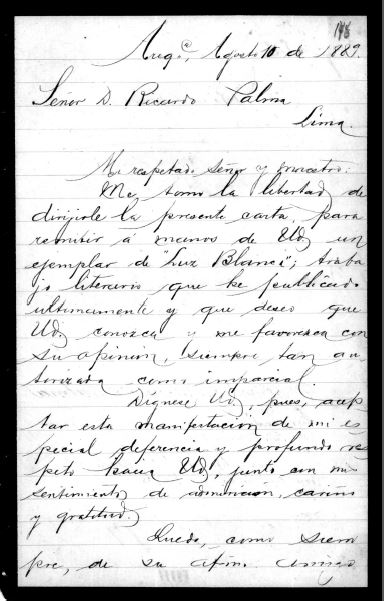 148
Areqª, Agosto 10 de 1889.
Señor D. Ricardo Palma
Lima.
Mi respetado Señor y maestro:
Me tomo la libertad de
dirijirle la presente carta, para
remitir á manos de Ud, un
ejemplar de "Luz Blanca"; traba
jo literario que he publicado
ultimamente y que deseo que
Ud, conozca y me favorezca con
su opinion, siempre tan au
torizada como imparcial.
Dígnese Ud, pues, acep
tar esta manifestacion de mi es
pecial deferencia y profundo res
peto hacia Ud, junto con mis
sentimientos de admiracion, cariño
y gratitud.
Quedo, como siem
pre, de su afmo. amigo